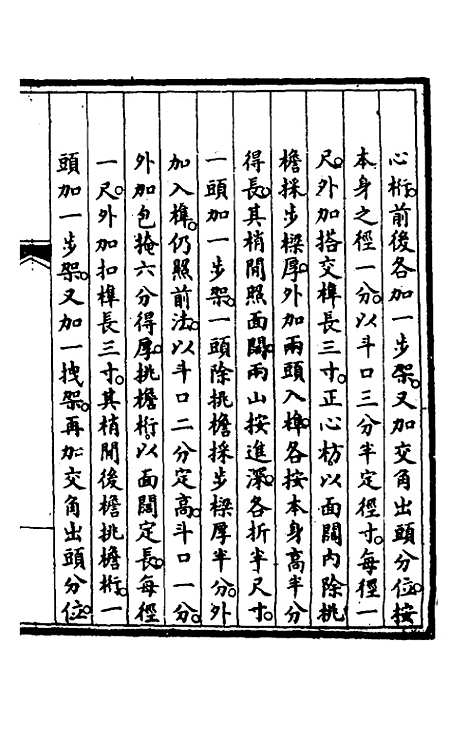 心桁。前後各加一步架。又加交角出頭分位。按
本身之徑一分。以斗口三分半定徑寸。每徑一
尺。外加搭交榫長三寸。正心枋。以面闊內除挑
檐採步樑厚。外加兩頭入榫。各按本身高半分
得長。其梢間照面闊。兩山按進深。各折半尺寸。
一頭加一步架。一頭除挑檐採步樑厚半分。外
加入榫。仍照前法。以斗口二分定高。斗口一分。
外加包掩六分得厚。挑檐桁。以面闊定長。每徑
一尺。外加扣榫長三寸。其梢間後檐挑檐桁。一
頭加一步架。又加一拽架。再加交角出頭分位。